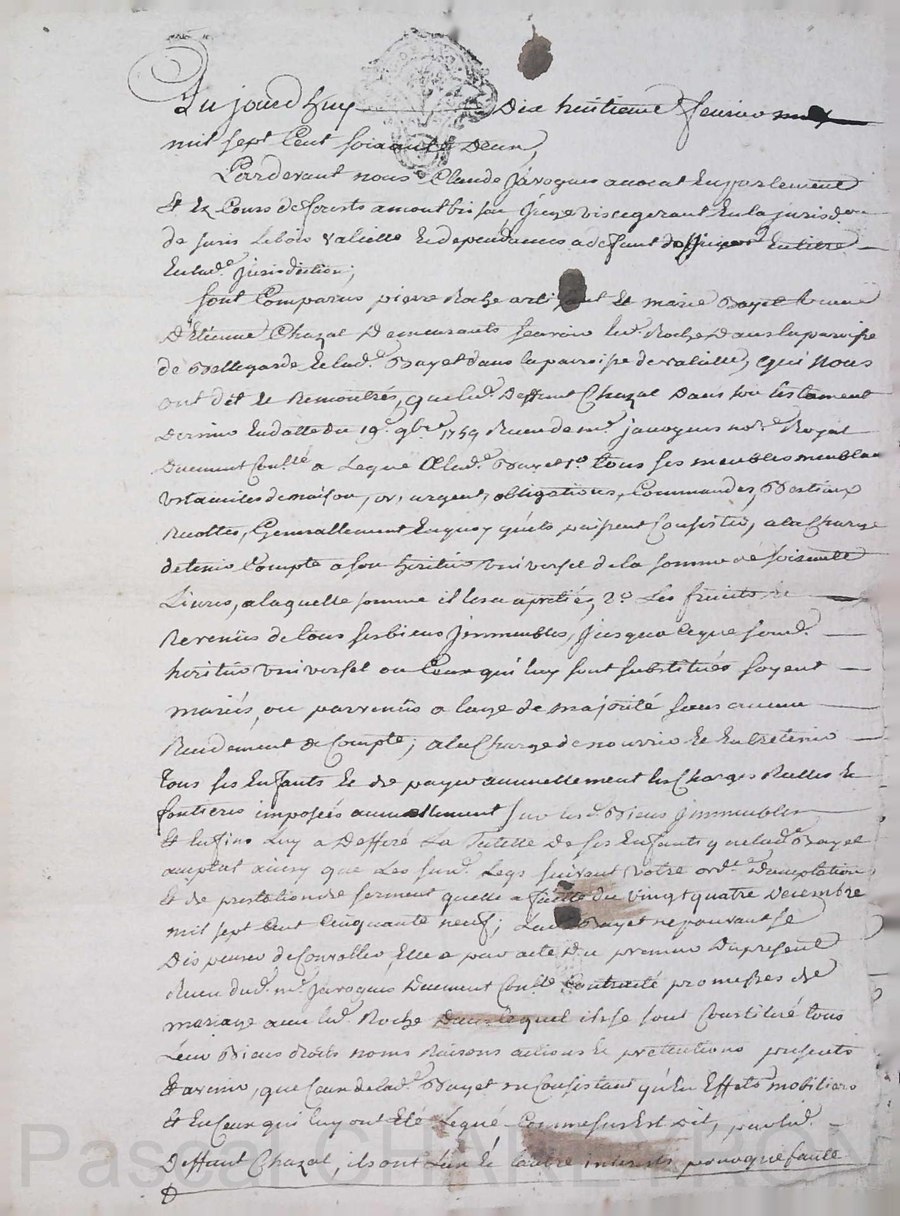 Aujourdhuy Dix huitieme feurier
mil sept Cent soixante Deux,
Pardevant nous Claude Javogues avocat En parlement
Et Es Cours de forests a montbrison Juge visegerant En la jurisd.on
de Suris Lebois valeille Et dependances a deffaut dofficier En titre
En lad.e Jurisdiction;
Sont Comparus pierre Roche artisant Et marie Bayet veuve
D'Etienne Chazal Demeurants scavoir led. Roche Dans la paroisse
de Bellegarde Et lad.e Bayet dans la paroisse de valeille, Qui nous
ont dit Et Remontrés, que led. Deffunt Chazal Dans son testament
Dernier En datte du 19.e 9bre 1759 Receu de m.e javogues no.re Royal
Duement Con.llé a Legué a lad.e Bayet 1.o tous ses meubles meublants
Ustancilles de maison, or, argent, obligations, Commandes, Bestiaux
Recoltes, Generallement En quoy quils puissent Consister, a la Charge
de tenir Compte a son heritier universel de la somme de soixante
Livres, a laquelle somme il les a apretiés, 2.o Les fruits Et
Revenus de tous ses biens Jmmeubles, Jusqua ceque son d.
heritier universel ou Ceux qui luy sont substitués soyent
mariés, ou parvenus a lage de majorité sans aucun
Rendement de Compte; a la Charge de nourrir Et Entretenir
tous ses Enfants Et de payer annuellement les Charges Reelles Et
foncieres imposées annuellement sur les d. Biens Jmmeubles
Et Enfin Luy a Defferé La Tutelle De ses Enfants que lad.e Bayet
accepta ainsy que Les susd. Legs suivant votre ord.e Dacceptation
Et de prestation de serment quelle a faitte du vingt quatre Decembre
mil sept Cent Cinquante neuf; Lad.e Bayet ne pouvant se
Dispenser de Convoller, Elle a par acte Du premier Du present
Receu dud. m.e Javogues Duement Con.llé Contracté promesses de
mariage avec led. Roche Dans lequel ils se sont Constitué tous
Leur Biens droits noms Raisons actions Et pretentions presents
Et avenir, que Ceux de lad.e Bayet ne Consistant qu'En Effets mobiliers
Et En Ceux qui luy ont Eté Legué Comme sus Est Dit, par led.
Deffunt Chazal, ils ont L'un Et Lautre interests
Pascal CHAREYRON